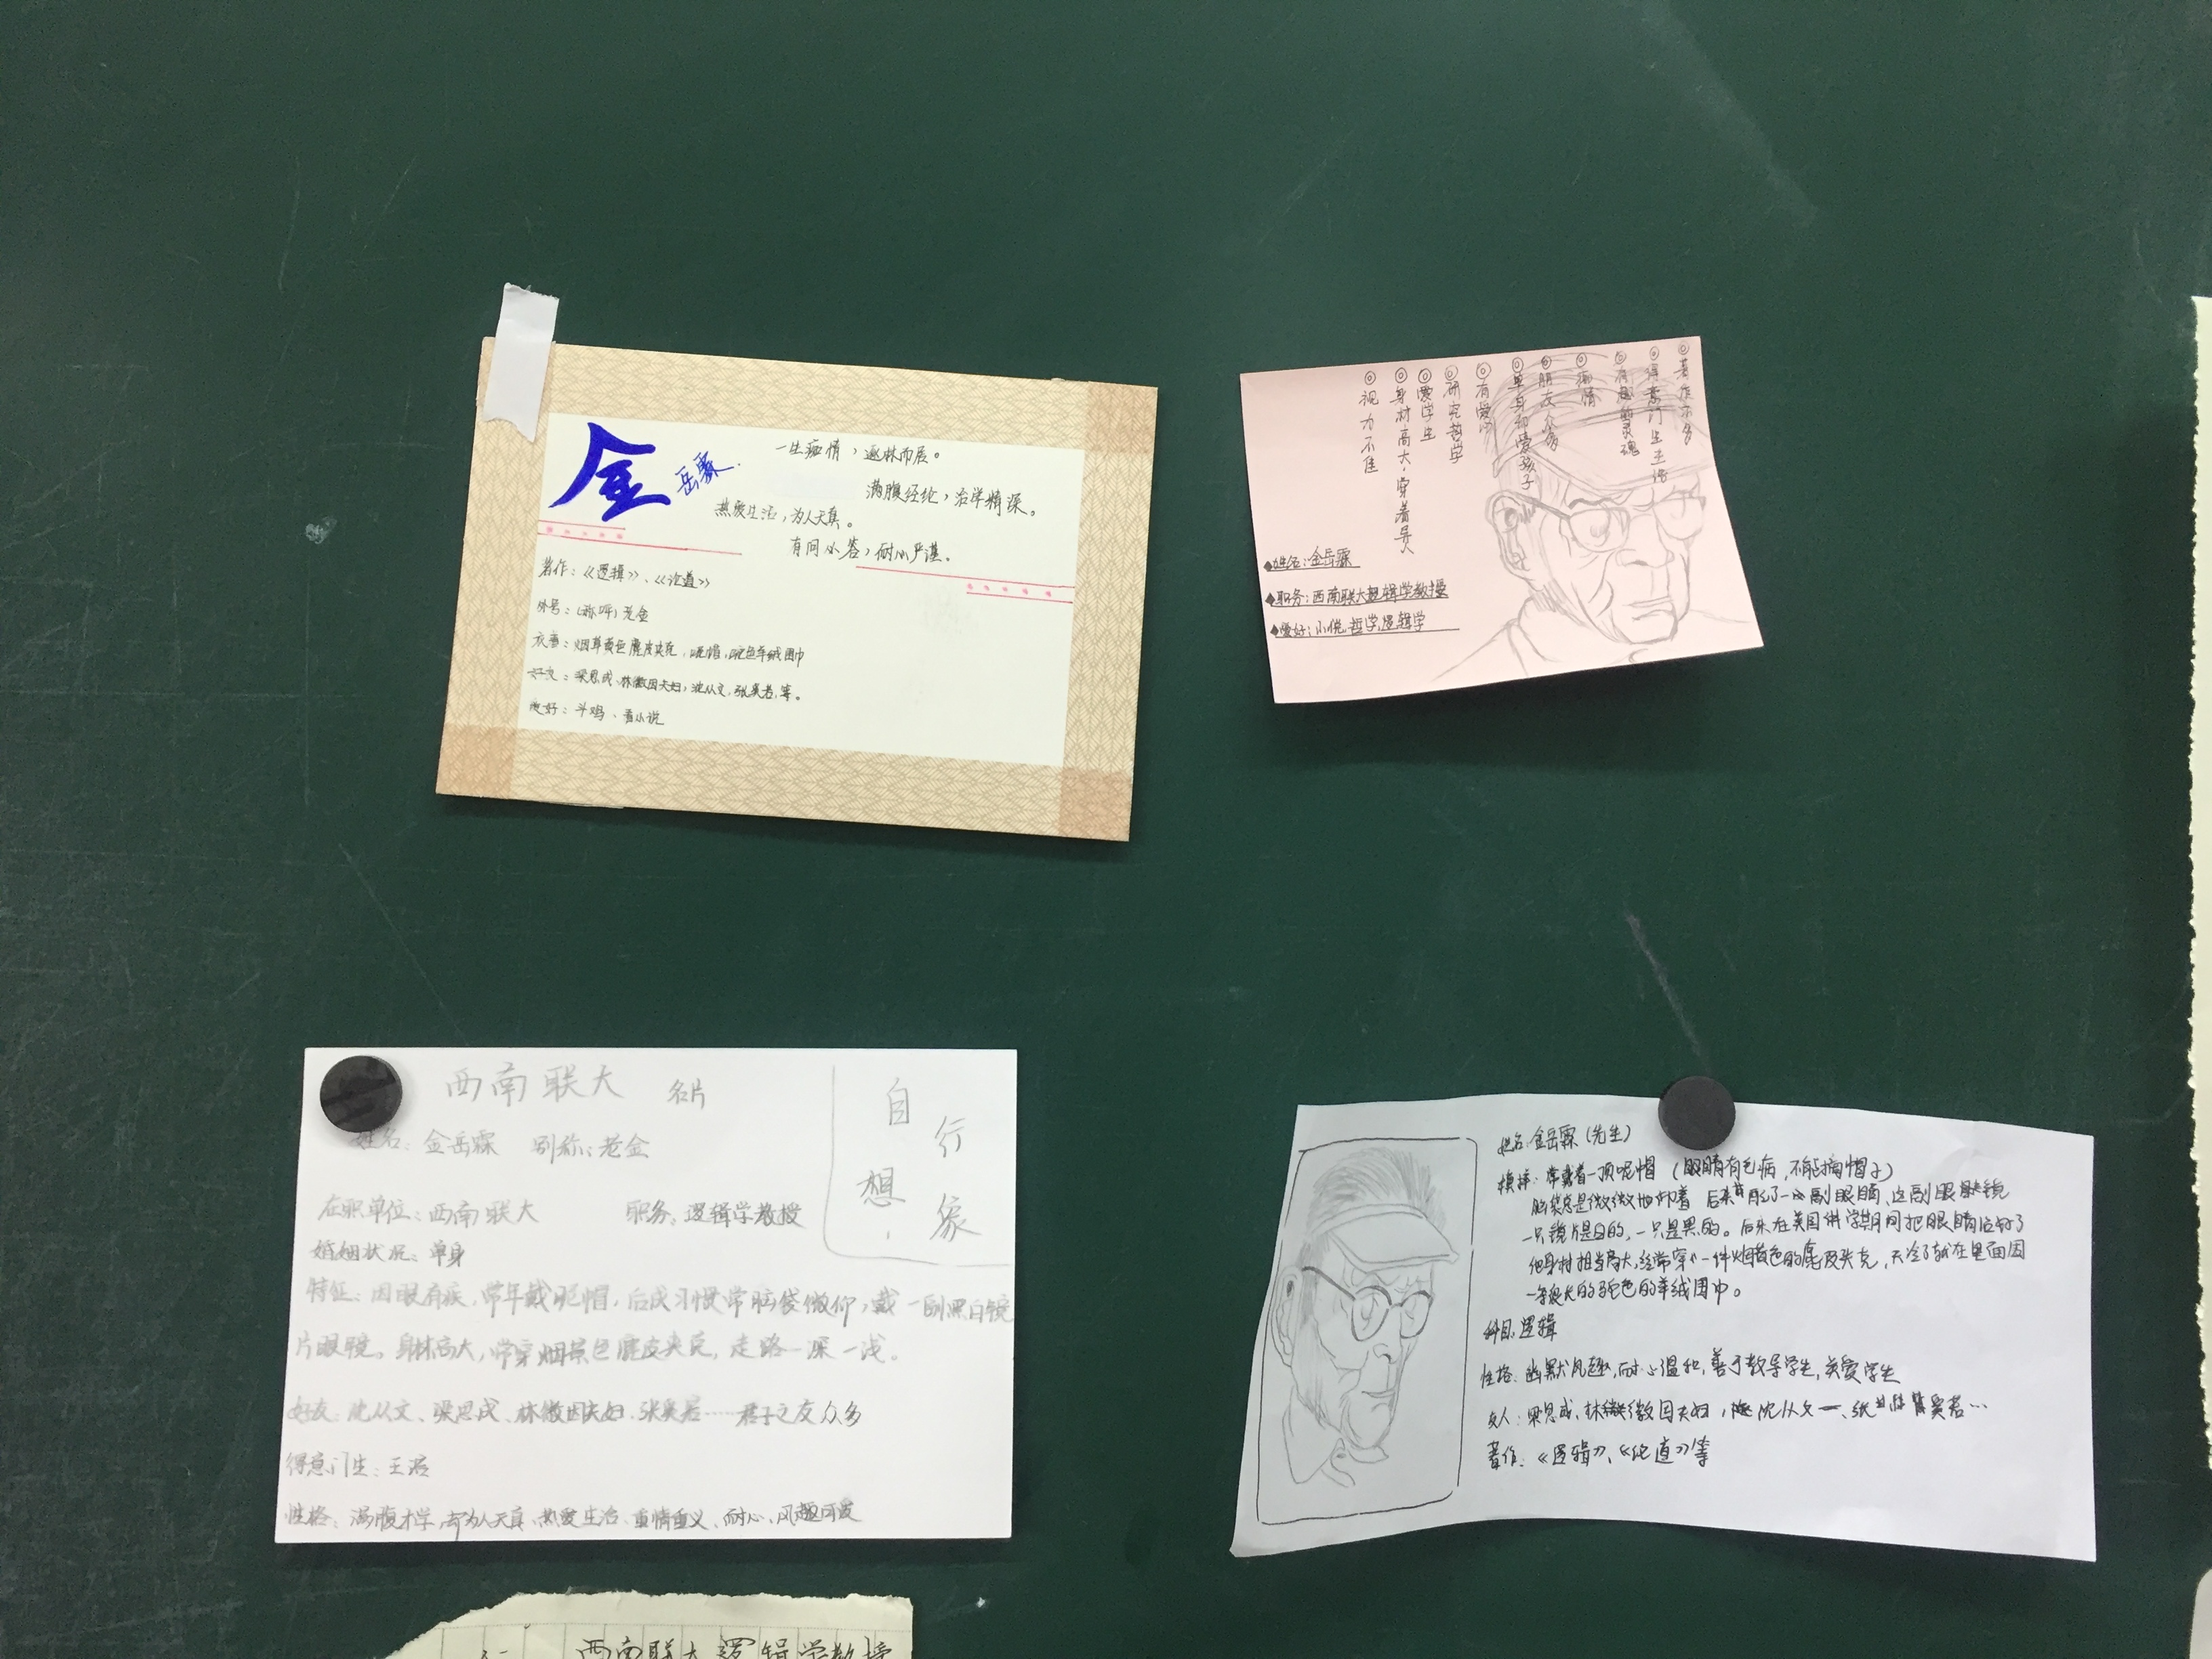 金岳霖.
一生痴情，逐林而居。
满腹经纶，治洋精深。
热爱生活，为人天真。
有问必答，耐心严谨。
著作：《逻辑》、《论道》
外号：(称呼) 老金
衣着：烟草黄色麂皮夹克，呢帽，驼色羊绒围巾
好友：梁思成、林徽因夫妇，沈从文，张奚若，等。
爱好：斗鸡、看小说
◎著作不多
◎得意门生王浩
◎有趣的灵魂
◎痴情
◎朋友众多
◎单身却爱孩子
◎有爱心
◎研究哲学
◎爱学生
◎身材高大，穿着异人
◎视力不佳
◆姓名：金岳霖
◆职务：西南联大逻辑学教授
◆爱好：小说、哲学、逻辑学
西南联大 名片
自行想象
姓名：金岳霖 别称：老金
在职单位：西南联大 职务：逻辑学教授
婚姻状况：单身
特征：因眼有疾，常年戴呢帽，后成习惯常脑袋微仰，戴一副黑白镜
片眼镜。身材高大，常穿烟黄色麂皮夹克，走路一深一浅。
好友：沈从文、梁思成、林徽因夫妇、张奚若……君子之友众多
得意门生：王浩
性格：满腹才学，却为人天真、热爱生活、重情重义、耐心、风趣可爱
姓名：金岳霖（先生）
模样：常戴着一顶呢帽（眼睛有毛病，不能摘帽子）
脑袋总是微微地仰着 后来配了一副眼睛、这副眼镜
一只镜片是白的，一只是黑的。后来在美国讲学期间把眼睛治好了
他身材相当高大，经常穿一件烟黄色的麂皮夹克，天冷了就在里面围
一条很长的驼色的羊绒围巾。
科目：逻辑
性格：幽默风趣，耐心温和，善于教导学生，关爱学生
友人：梁思成、林徽因夫妇，沈从文、张奚若…
著作：《逻辑》、《论道》等
西南联大逻辑学教授